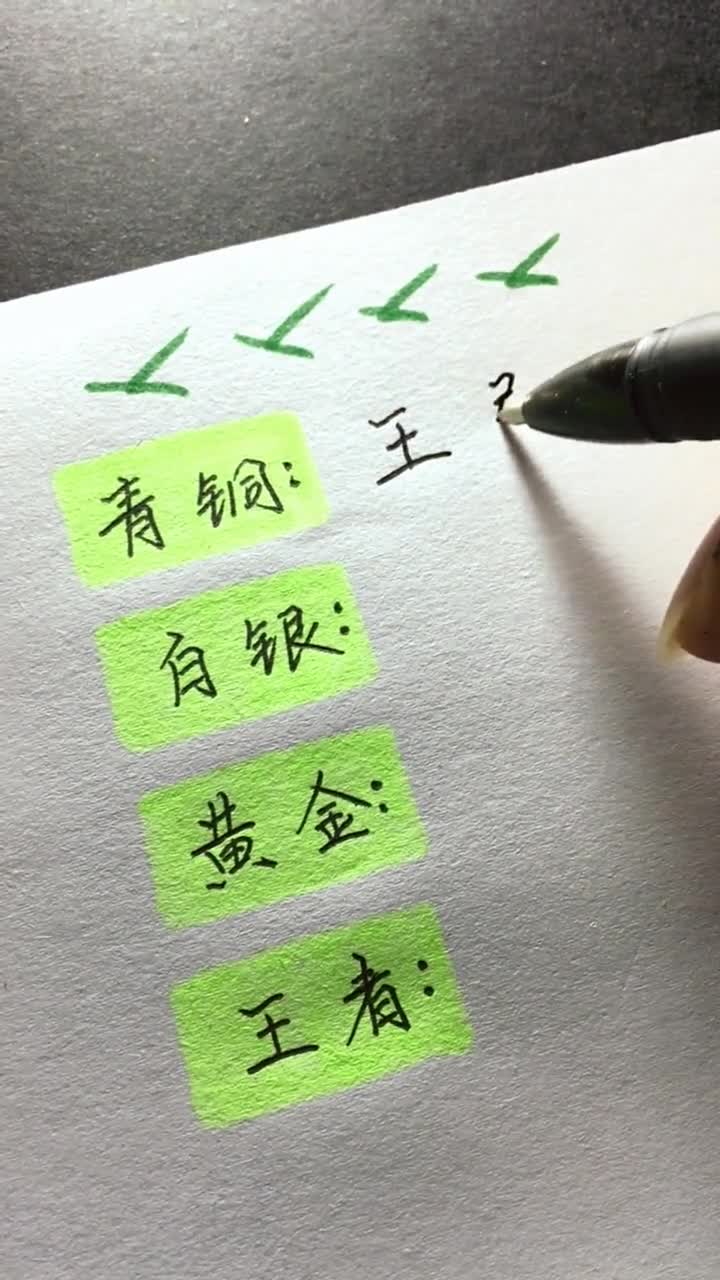 青铜: 王
白银:
黄金:
王者: